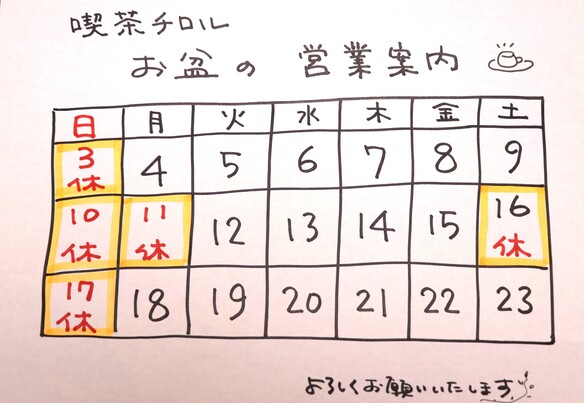 喫茶チロル
お盆の営業案内
日 月 火 水 木 金 土
3 4 5 6 7 8 9
休
10 11 12 13 14 15 16
休 休 休
17 18 19 20 21 22 23
休
よろしくお願いいたします